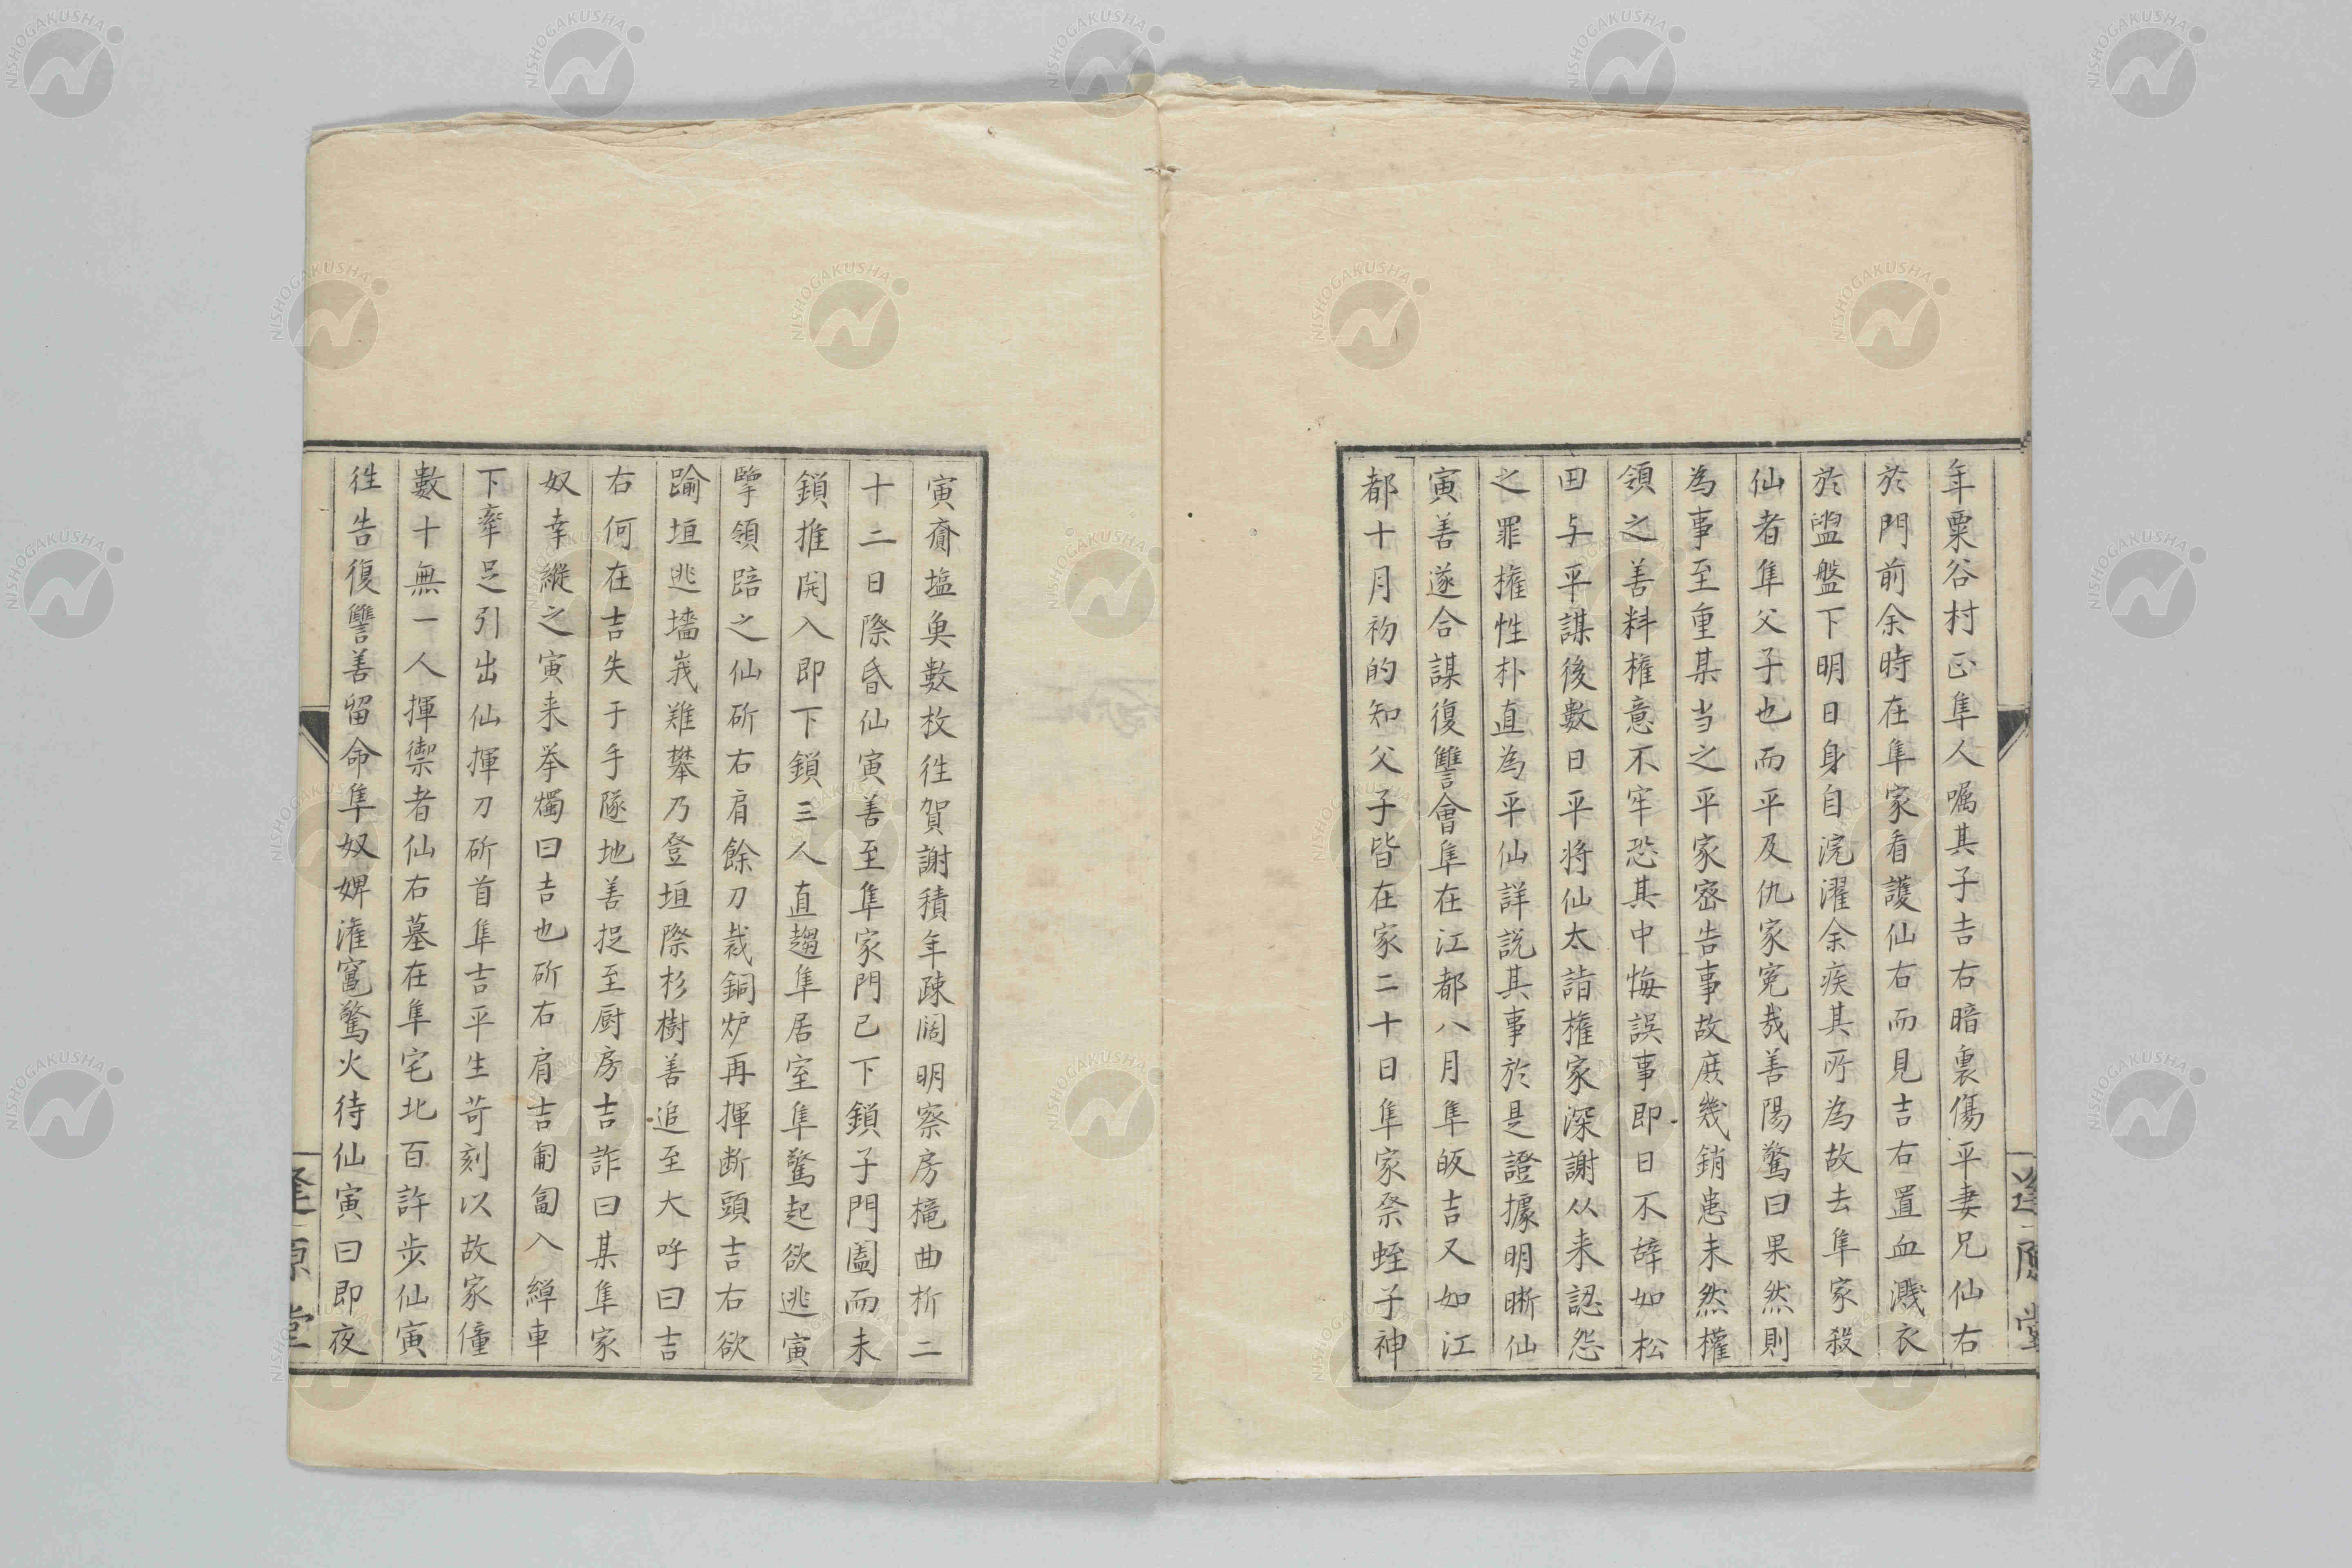 年粟谷村正隼人嘱其子吉右暗裏傷平妻兄仙右
於門前余時在隼家看護仙右而見吉右置血濺衣
於盥盤下明日身自浣濯余疾其所為故去隼家殺
仙者隼父子也而平及仇家冤哉善陽驚曰果然則
為事至重某当之平家密告事故庶幾銷恚未然權
領之善料権意不牢恐其中悔誤事即日不辞如松
田与平謀後数日平将仙太詣権家深謝从来認怨
之罪権性朴直為平仙詳説其事於是證據明晰仙
寅善遂合謀復讐會隼在江都八月隼皈吉又如江
都十月初的知父子皆在家二十日隼家祭蛭子神
寅齎塩奥數枚徃賀謝積年疎闊明察房櫳曲折二
十二日際昏仙寅善至隼家門已下鎖子門闔而未
鎖推開入即下鎖三人直趨隼居室隼驚起欲逃寅
擥領踣之仙斫右肩餘刀裁銅炉再揮断頭吉右欲
踰垣逃墻峩難攀乃登垣際杉樹善追至大呼曰吉
右何在吉失于手隊地善捉至厨房吉詐曰某隼家
奴幸縦之寅来挙燭曰吉也斫右肩吉匍匐入繟車
下牽足引出仙揮刀斫首隼吉平生苛刻以故家僮
數十無一人揮禦者仙右墓在隼宅北百許歩仙寅
徃告復讐善留命隼奴婢潅竃驚火待仙寅曰即夜
逢原堂
逢原堂
NISHOGAKUSHA